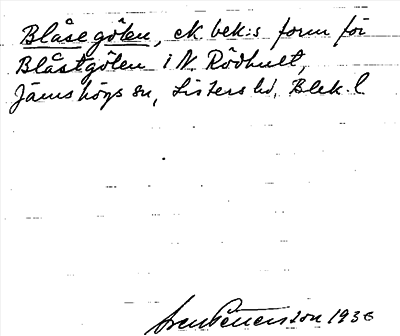 Blåsegölen, ek bek:s form för
Blåstgölen i N. Rödhult,
Jämshögs sn, Listers hd, Blek. l
Sven Petersson 1936